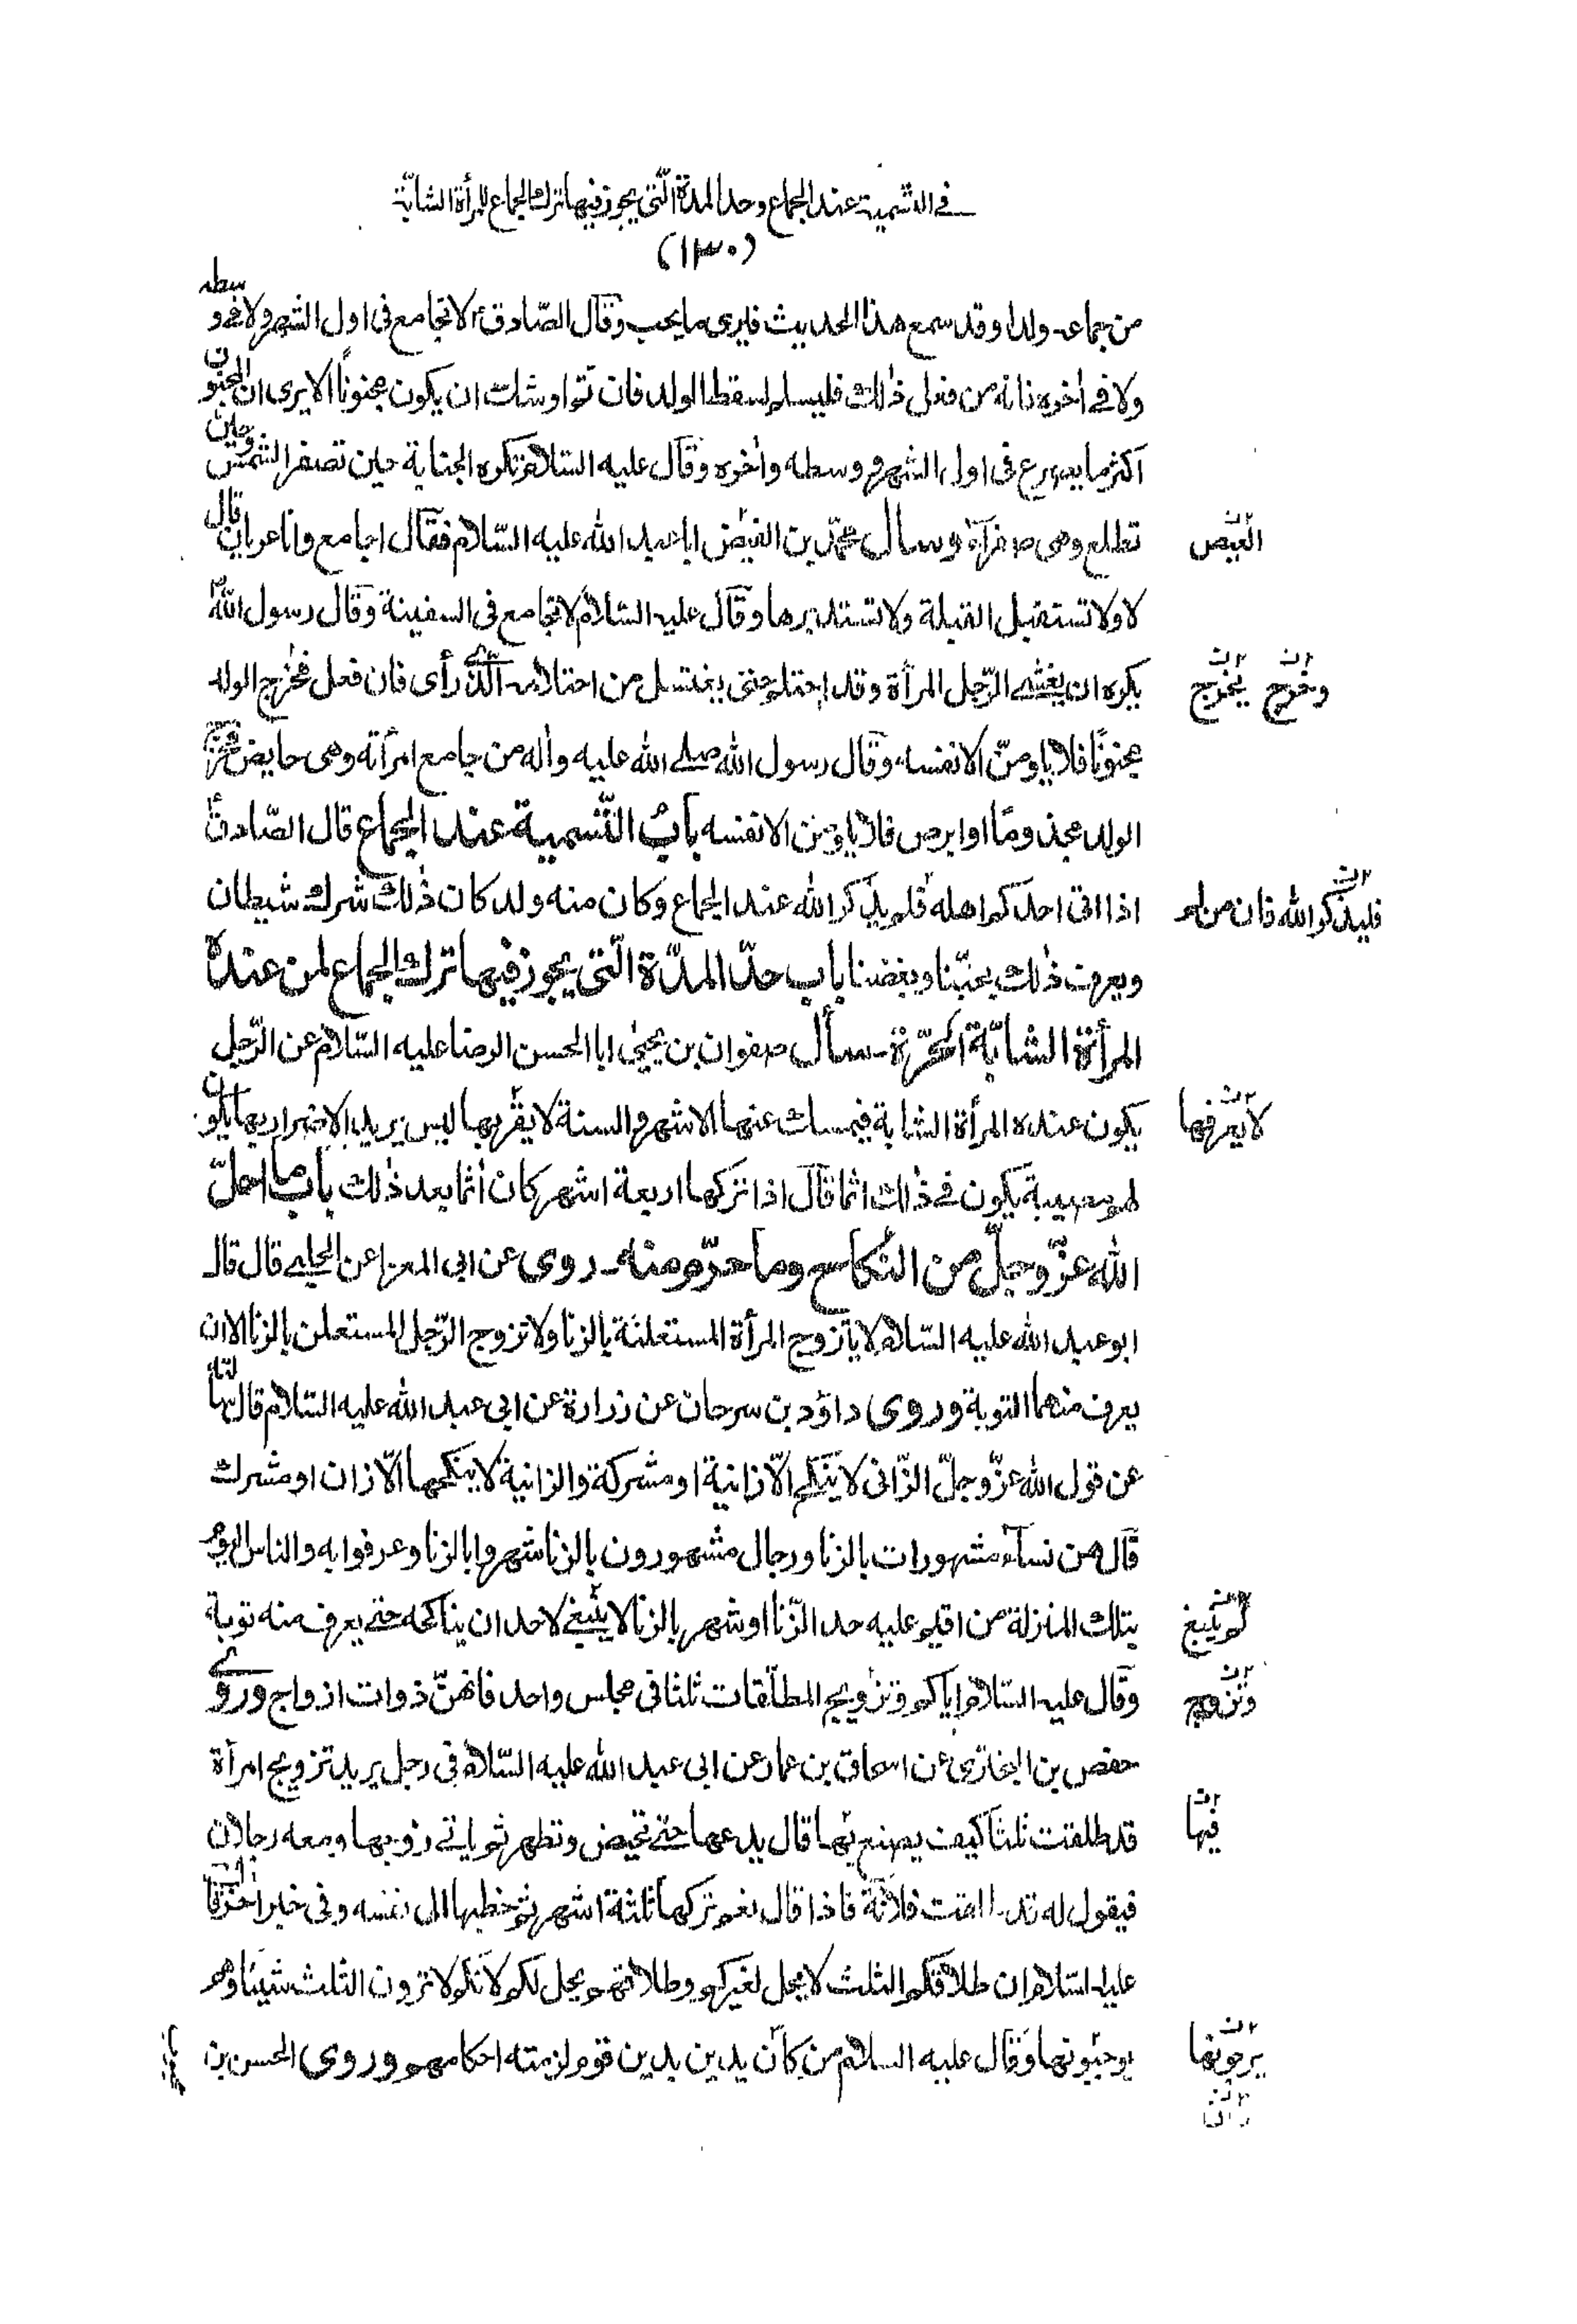 في التسمية عند الجماع وحد المدة الّتي يجوز فيها ترك الجماع للمرأة الشابّة
(١٣٠)
من جماعه ولدا وقد سمع هذا الحديث فليرى ما يحب وقال الصّادقؑ لا تجامع في اول الشهر ولا في وسطه
ولا في اٰخره فانه من فعل ذٰلك فليسلم لسقط الولد فان تم اوشك ان يكون مجنونًا الا يرى ان المجنون
اكثر ما يصرع في اول الشهر ووسطه واٰخره وقال عليه السّلام تكره الجنابة حين تصفر الشمس وحين
تطلع وهى صفرآء وسأل محمّد بن الفيض ابا عبد الله عليه السّلام فقال اجامع وانا عريان قال
العيص
لا ولا تستقبل القبلة ولا تستدبرها وقال عليه السّلام لا تجامع في السفينة وقال رسول اللهؐ
يكره ان يغشى الرّجل المرأة وقد احتلم حتى يغتسل من احتلامه الّذى رأى فان فعل فخرج الولد
وخرج يخرج
مجنونًا فلا يلومنّ الا نفسه وقال رسول الله صلى الله عليه واٰله من جامع امرأته وهى حايض فخرج
الولد مجذومًا او ابرص فلا يلومن الا نفسه باب التّسمية عند الجماع قال الصّادقؑ
اذا اتى احدكم اهله فلم يذكر الله عند الجماع وكان منه ولد كان ذٰلك شرك شيطان
فليذكر الله فان من لم
ويعرف ذٰلك بحبّنا وبغضنا باب حدّ المدّة الّتى يجوز فيها ترك الجماع لمن عنده
المرأة الشابّة الحرّة سأل صفوان بن يحيى ابا الحسن الرضا عليه السّلام عن الرّجل
يكون عنده المرأة الشابة فيمسك عنها الاشهر والسنة لا يقربها ليس يريد الاضرار بها يكون
لا يعرفها
لهم مصيبة يكون في ذٰلك اثما قال اذا تركها اربعة اشهر كان اٰثما بعد ذٰلك باب ما احلّ
الله عزّ وجلّ من النّكاح وما حرّم منه روى عن ابى المعزا عن الحلبي قال قال
ابو عبد الله عليه السّلام لا يتزوج المرأة المستعلنة بالزنا ولا تزوج الرّجل المستعلن بالزنا الا ان
يعرف منهما التوبة وروى داؤد بن سرحان عن زرارة عن ابى عبد الله عليه السّلام قال سألته
عن قول الله عزّ وجلّ الزّانى لا ينكح الّا زانية او مشركة والزانية لا ينكحها الّا زان او مشرك
قال هن نسآء مشهورات بالزنا ورجال مشهورون بالزنا شهروا بالزنا وعرفوا به والناس اليوم
بتلك المنزلة من اقيم عليه حد الزّنا او شهر بالزنا لا ينبغى لاحد ان يناكحه حتى يعرف منه توبة
لم ينبغ
وقال عليه السّلام اياكم وتزويج المطلّقات ثلثا في مجلس واحد فانهنّ ذوات ازواج وروى
وتزوج
حفص بن البخترى عن اسحاق بن عمار عن ابى عبد الله عليه السّلام في رجل يريد تزويج امرأة
قد طلقت ثلثا كيف يصنع بها قال يدعها حتى تحيض وتطهر ثم ياتى زوجها ومعه رجلان
فيها
فيقول له قد طلقت فلانة فاذا قال نعم تركها ثلثة اشهر ثم خطبها الى نفسه وفى خبر اٰخر قال
عليه السّلام ان طلاقكم الثلث لا يحل لغيركم وطلاقهم يحل لكم لانكم لا ترون الثلث شيئا وهم
يوجبونها وقال عليه السلام من كان يدين بدين قوم لزمته احكامهم وروى الحسن بن
يرجونها